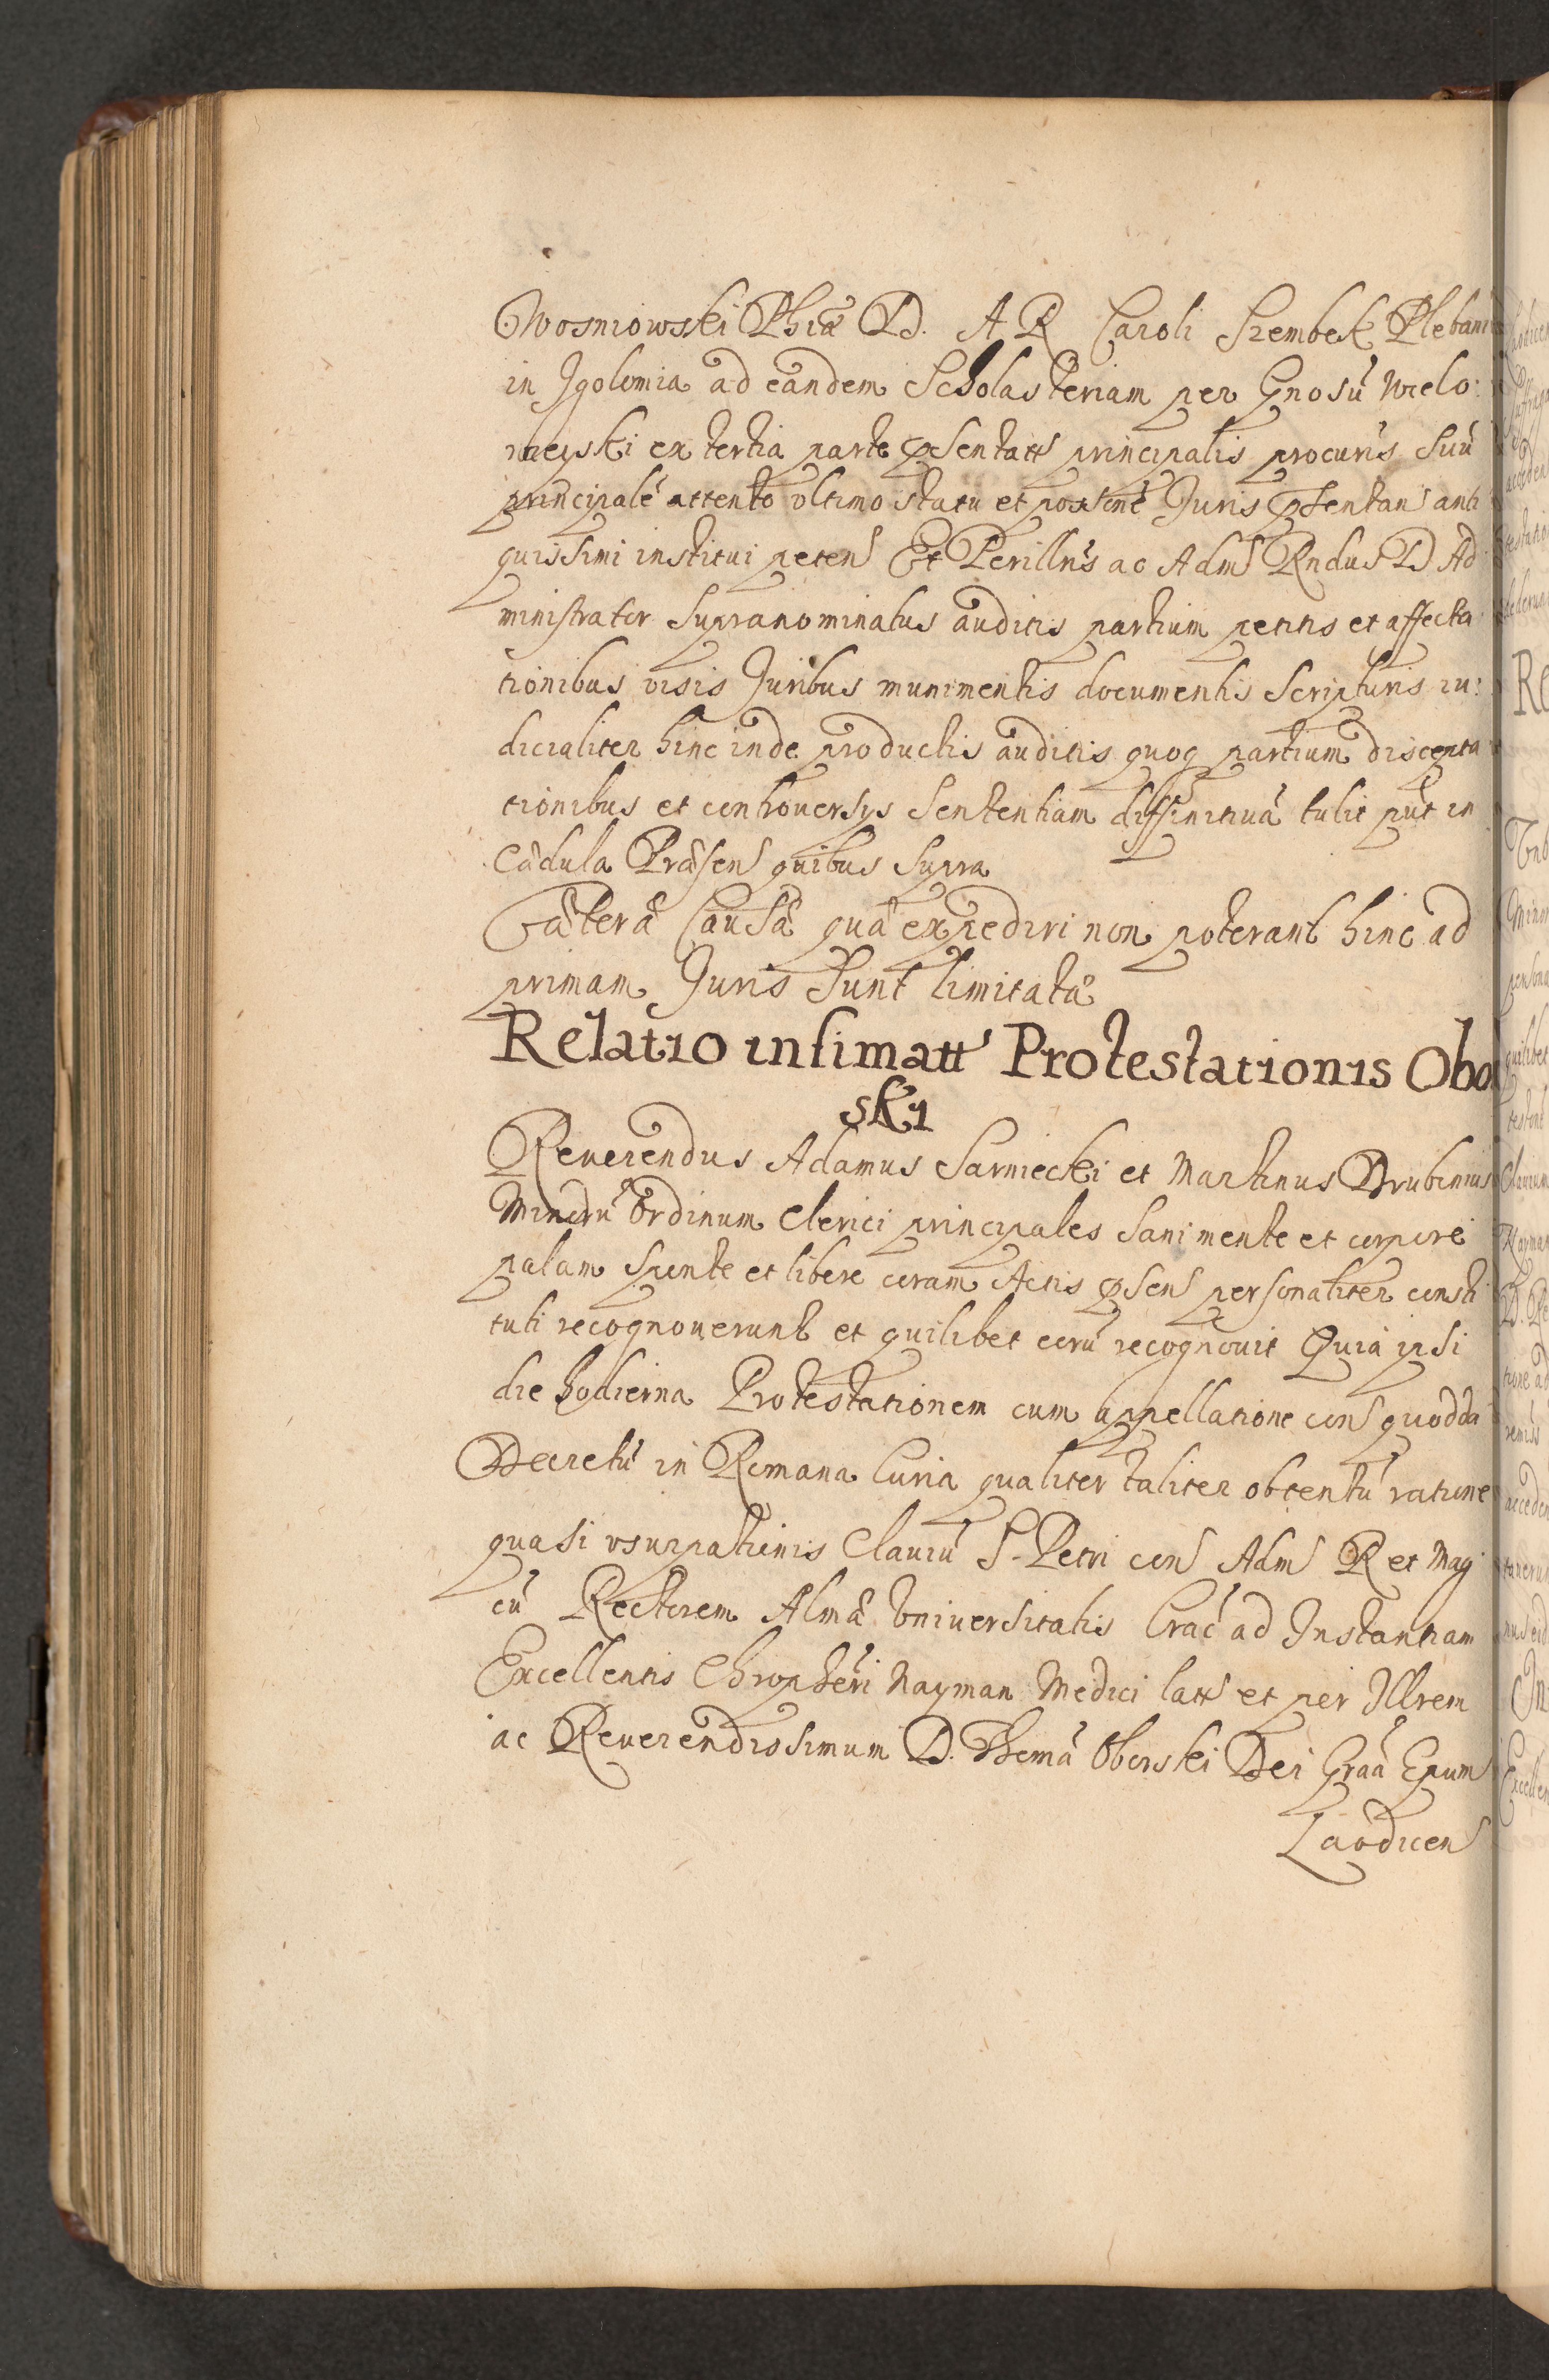 Wosniowski Phiæ D. A R Caroli Szembek Plebani
in Igolomia ad eandem Scholasteriam per Gnosũ Wielo:
wieyski ex tertia parte pSentatt principalis procuris Suũ
principalẽ attento vltimo statu et possinẽ Juris pSentan anti
quissimi institui peten Et Perillris ac Adm Rndus D Ad
ministrator Supranominatus auditis partium petitis et affecta
tionibus visis Juribus munimentis documentis Scripturis iu:
dicialiter hinc inde productis auditis quoq partium discepta
tionibus et controuersys Sententiam diffinitiuã tulit put in
Cædula Præsen quibus Supra
Cæteræ Causæ quæ expediri non poterant hinc ad
primam Juris Sunt limitatæ
Relatio insimatt Protestationis Obor
ski
Reuerendus Adamus Sarniecki et Martinus Drubinius
Minorũ Ordinum Clerici principales Sani mente et corpore
palam Sponte et libere coram Actis pSen personaliter consti
tuti recognouerunt et quilibet eorũ recognouit Quia ipsi
die hodierna Protestationem cum appellatione con quoddã
Decretũ in Romana Curia qualiter taliter obtentũ ratione
quasi vsurpationis Clauiũ S. Petri con Adm R et Mag
cũ Rectorem Almæ Vniuersitatis Crac ad Instantiam
Excellentis Chropheri Nayman Medici latt et per Illrem
ac Reuerendissimum D. Thomã Oborski Dei Graã Epum
Laodicen